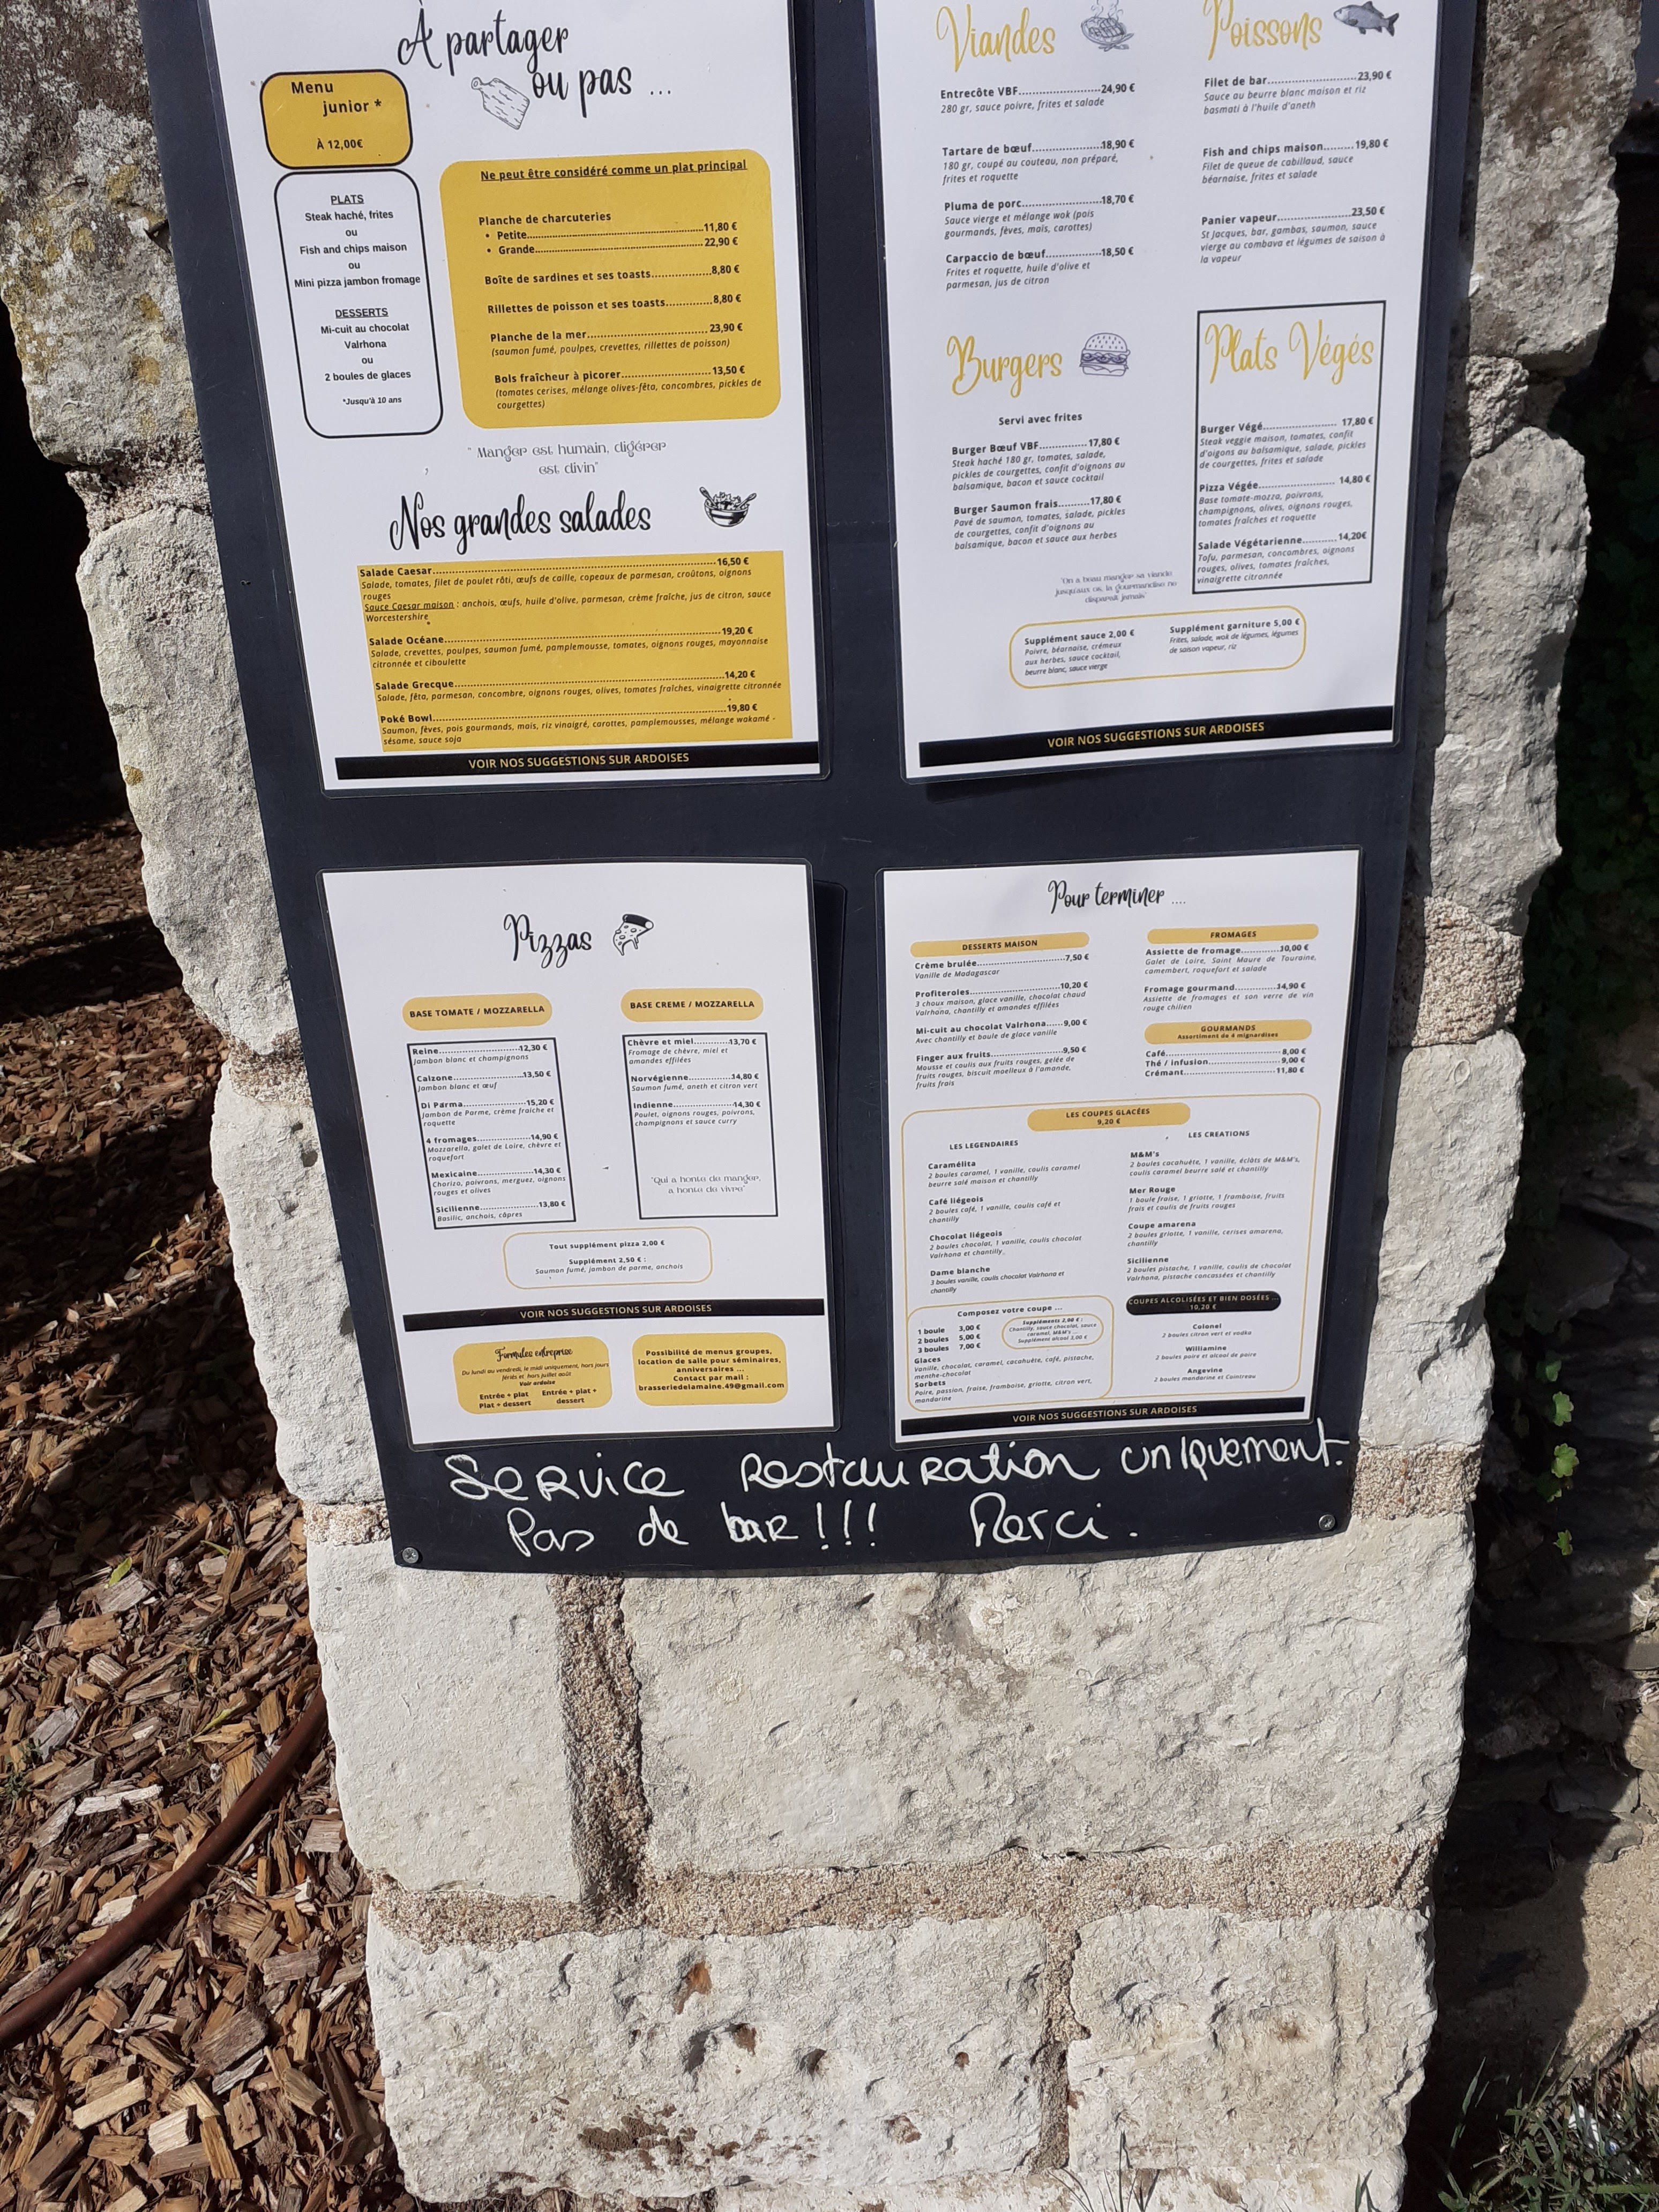 À partager
ou pas ...
Menu
junior *
À 12,00€
PLATS
Steak haché, frites
ou
Fish and chips maison
ou
Mini pizza jambon fromage
DESSERTS
Mi-cuit au chocolat
Valrhona
ou
2 boules de glaces
*Jusqu'à 10 ans
Ne peut être considéré comme un plat principal
Planche de charcuteries
• Petite..........11,80 €
• Grande..........22,90 €
Boîte de sardines et ses toasts..........8,80 €
Rillettes de poisson et ses toasts..........8,80 €
Planche de la mer..........23,90 €
(saumon fumé, poulpes, crevettes, rillettes de poisson)
Bols fraîcheur à picorer..........13,50 €
(tomates cerises, mélange olives-fêta, concombres, pickles de
courgettes)
" Manger est humain, digérer
est divin"
Nos grandes salades
Salade Caesar..........16,50 €
Salade, tomates, filet de poulet rôti, œufs de caille, copeaux de parmesan, croûtons, oignons
rouges
Sauce Caesar maison : anchois, œufs, huile d'olive, parmesan, crème fraîche, jus de citron, sauce
Worcestershire
Salade Océane..........19,20 €
Salade, crevettes, poulpes, saumon fumé, pamplemousse, tomates, oignons rouges, mayonnaise
citronnée et ciboulette
Salade Grecque..........14,20 €
Salade, fêta, parmesan, concombre, oignons rouges, olives, tomates fraîches, vinaigrette citronnée
Poké Bowl..........19,80 €
Saumon, fèves, pois gourmands, maïs, riz vinaigré, carottes, pamplemousses, mélange wakamé -
sésame, sauce soja
VOIR NOS SUGGESTIONS SUR ARDOISES
Viandes
Entrecôte VBF..........24,90 €
280 gr, sauce poivre, frites et salade
Tartare de bœuf..........18,90 €
180 gr, coupé au couteau, non préparé,
frites et roquette
Pluma de porc..........18,70 €
Sauce vierge et mélange wok (pois
gourmands, fèves, maïs, carottes)
Carpaccio de bœuf..........18,50 €
Frites et roquette, huile d'olive et
parmesan, jus de citron
Poissons
Filet de bar..........23,90 €
Sauce au beurre blanc maison et riz
basmati à l'huile d'aneth
Fish and chips maison..........19,80 €
Filet de queue de cabillaud, sauce
béarnaise, frites et salade
Panier vapeur..........23,50 €
St Jacques, bar, gambas, saumon, sauce
vierge au combava et légumes de saison à
la vapeur
Burgers
Servi avec frites
Burger Bœuf VBF..........17,80 €
Steak haché 180 gr, tomates, salade,
pickles de courgettes, confit d'oignons au
balsamique, bacon et sauce cocktail
Burger Saumon frais..........17,80 €
Pavé de saumon, tomates, salade, pickles
de courgettes, confit d'oignons au
balsamique, bacon et sauce aux herbes
"On a beau manger sa viande
jusqu'aux os, la gourmandise ne
disparaît jamais"
Plats Végés
Burger Végé..........17,80 €
Steak veggie maison, tomates, confit
d'oigons au balsamique, salade, pickles
de courgettes, frites et salade
Pizza Végée..........14,80 €
Base tomate-mozza, poivrons,
champignons, olives, oignons rouges,
tomates fraîches et roquette
Salade Végétarienne..........14,20€
Tofu, parmesan, concombres, oignons
rouges, olives, tomates fraîches,
vinaigrette citronnée
Supplément sauce 2,00 €
Poivre, béarnaise, crémeux
aux herbes, sauce cocktail,
beurre blanc, sauce vierge
Supplément garniture 5,00 €
Frites, salade, wok de légumes, légumes
de saison vapeur, riz
VOIR NOS SUGGESTIONS SUR ARDOISES
Pizzas
BASE TOMATE / MOZZARELLA
Reine..........12,30 €
Jambon blanc et champignons
Calzone..........13,50 €
Jambon blanc et œuf
Di Parma..........15,20 €
Jambon de Parme, crème fraiche et
roquette
4 fromages..........14,90 €
Mozzarella, galet de Loire, chèvre et
roquefort
Mexicaine..........14,30 €
Chorizo, poivrons, merguez, oignons
rouges et olives
Sicilienne..........13,80 €
Basilic, anchois, câpres
BASE CREME / MOZZARELLA
Chèvre et miel..........13,70 €
Fromage de chèvre, miel et
amandes effilées
Norvégienne..........14,80 €
Saumon fumé, aneth et citron vert
Indienne..........14,30 €
Poulet, oignons rouges, poivrons,
champignons et sauce curry
"Qui a honte de manger,
a honte de vivre"
Tout supplément pizza 2,00 €
Supplément 2,50 € :
Saumon fumé, jambon de parme, anchois
VOIR NOS SUGGESTIONS SUR ARDOISES
Formules entreprise
Du lundi au vendredi, le midi uniquement, hors jours
fériés et hors juillet août
Voir ardoise
Entrée + plat
Plat + dessert
Entrée + plat +
dessert
Possibilité de menus groupes,
location de salle pour séminaires,
anniversaires ...
Contact par mail :
brasseriedelamaine.49@gmail.com
Pour terminer ....
DESSERTS MAISON
Crème brulée..........7,50 €
Vanille de Madagascar
Profiteroles..........10,20 €
3 choux maison, glace vanille, chocolat chaud
Valrhona, chantilly et amandes effilées
Mi-cuit au chocolat Valrhona......9,00 €
Avec chantilly et boule de glace vanille
Finger aux fruits..........9,50 €
Mousse et coulis aux fruits rouges, gelée de
fruits rouges, biscuit moelleux à l'amande,
fruits frais
FROMAGES
Assiette de fromage..........10,00 €
Galet de Loire, Saint Maure de Touraine,
camembert, roquefort et salade
Fromage gourmand..........14,90 €
Assiette de fromages et son verre de vin
rouge chilien
GOURMANDS
Assortiment de 4 mignardises
Café..........8,00 €
Thé / infusion..........9,00 €
Crémant..........11,80 €
LES COUPES GLACÉES
9,20 €
LES LEGENDAIRES
Caramélita
2 boules caramel, 1 vanille, coulis caramel
beurre salé maison et chantilly
Café liégeois
2 boules café, 1 vanille, coulis café et
chantilly
Chocolat liégeois
2 boules chocolat, 1 vanille, coulis chocolat
Valrhona et chantilly
Dame blanche
3 boules vanille, coulis chocolat Valrhona et
chantilly
LES CREATIONS
M&M's
2 boules cacahuète, 1 vanille, éclats de M&M's,
coulis caramel beurre salé et chantilly
Mer Rouge
1 boule fraise, 1 griotte, 1 framboise, fruits
frais et coulis de fruits rouges
Coupe amarena
2 boules griotte, 1 vanille, cerises amarena,
chantilly
Sicilienne
2 boules pistache, 1 vanille, coulis de chocolat
Valrhona, pistache concassées et chantilly
Composez votre coupe ...
1 boule 3,00 €
2 boules 5,00 €
3 boules 7,00 €
Suppléments 2,00 € :
Chantilly, sauce chocolat, sauce
caramel, M&M's ...
Supplément alcool 3,00 €
Glaces
Vanille, chocolat, caramel, cacahuète, café, pistache,
menthe-chocolat
Sorbets
Poire, passion, fraise, framboise, griotte, citron vert,
mandarine
COUPES ALCOLISÉES ET BIEN DOSÉES ...
10,20 €
Colonel
2 boules citron vert et vodka
Williamine
2 boules poire et alcool de poire
Angevine
2 boules mandarine et Cointreau
VOIR NOS SUGGESTIONS SUR ARDOISES
Service Restauration uniquement.
Pas de bar!!! Merci.